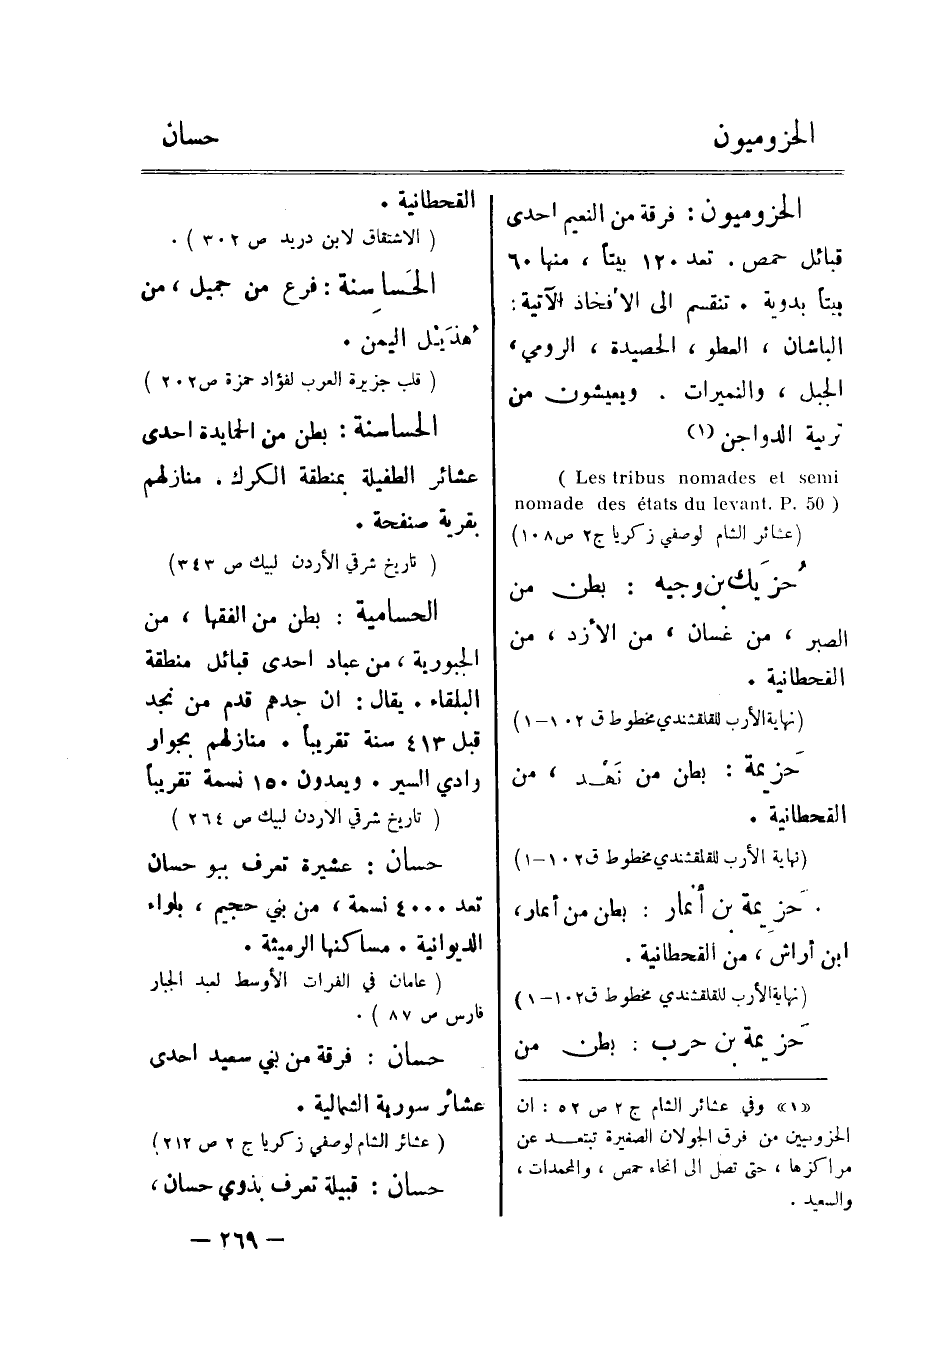 الحزوميون
حسان
الحزوميون : فرقة من النعيم احدى
قبائل حمص . تعد ١٢٠ بيتاً ، منها ٦٠
بيتاً بدوية . تنقسم الى الأفخاذ الآتية :
الباشان ، العطو ، الحصيدة ، الرومي ،
الجبل ، والنميرات . ويعيشون من
تربية الدواجن (١)
( Les tribus nomades et semi
nomade des états du levant. P. 50 )
(عشائر الشام لوصفي زكريا ج٢ ص١٠٨)
حُزَيك بن وجيه : بطن من
الصبر ، من غسان ، من الأزد ، من
القحطانية .
(نهاية الأرب للقلقشندي مخطوط ق ١٠٢–١)
حَزيمة : بطن من نَهْد ، من
القحطانية .
(نهاية الأرب للقلقشندي مخطوط ق١٠٢–١)
حَزيمة بن أنمار : بطن من أنمار ،
ابن أراش ، من القحطانية .
(نهاية الأرب للقلقشندي مخطوط ق١٠٢–١)
حَزيمة بن حرب : بطن من
«١» وفي عشائر الشام ج ٢ ص ٥٢ : ان
الحزوميين من فرق الجولان الصغيرة تبتعد عن
مراكزها ، حتى تصل الى انحاء حمص ، والمحمدات ،
والسعيد .
القحطانية .
( الاشتقاق لابن دريد ص ٣٠٢ ) .
الحَساسِنة : فرع من جميل ، من
هُذَيْل اليمن .
( قلب جزيرة العرب لفؤاد حمزة ص٢٠٢ )
الحساسنة : بطن من الحمايدة احدى
عشائر الطفيلة بمنطقة الكرك . منازلهم
بقرية صنفحة .
( تاريخ شرقي الأردن لبيك ص ٣٤٣)
الحسامية : بطن من الفقها ، من
الجبورية ، من عباد احدى قبائل منطقة
البلقاء . يقال : ان جدهم قدم من نجد
قبل ٤١٣ سنة تقريباً . منازلهم بجوار
وادي السير . ويعدون ١٥٠ نسمة تقريباً
( تاريخ شرقي الاردن لبيك ص ٢٦٤ )
حسان : عشيرة تعرف ببو حسان
تعد ٤٠٠٠ نسمة ، من بني حجيم ، بلواء
الديوانية . مساكنها الرميثة .
( عامان في الفرات الأوسط لعبد الجبار
فارس ص ٨٧ ) .
حسان : فرقة من بني سعيد احدى
عشائر سورية الشمالية .
( عشائر الشام لوصفي زكريا ج ٢ ص ٢١٢)
حسان : قبيلة تعرف بذوي حسان ،
— ٢٦٩ —